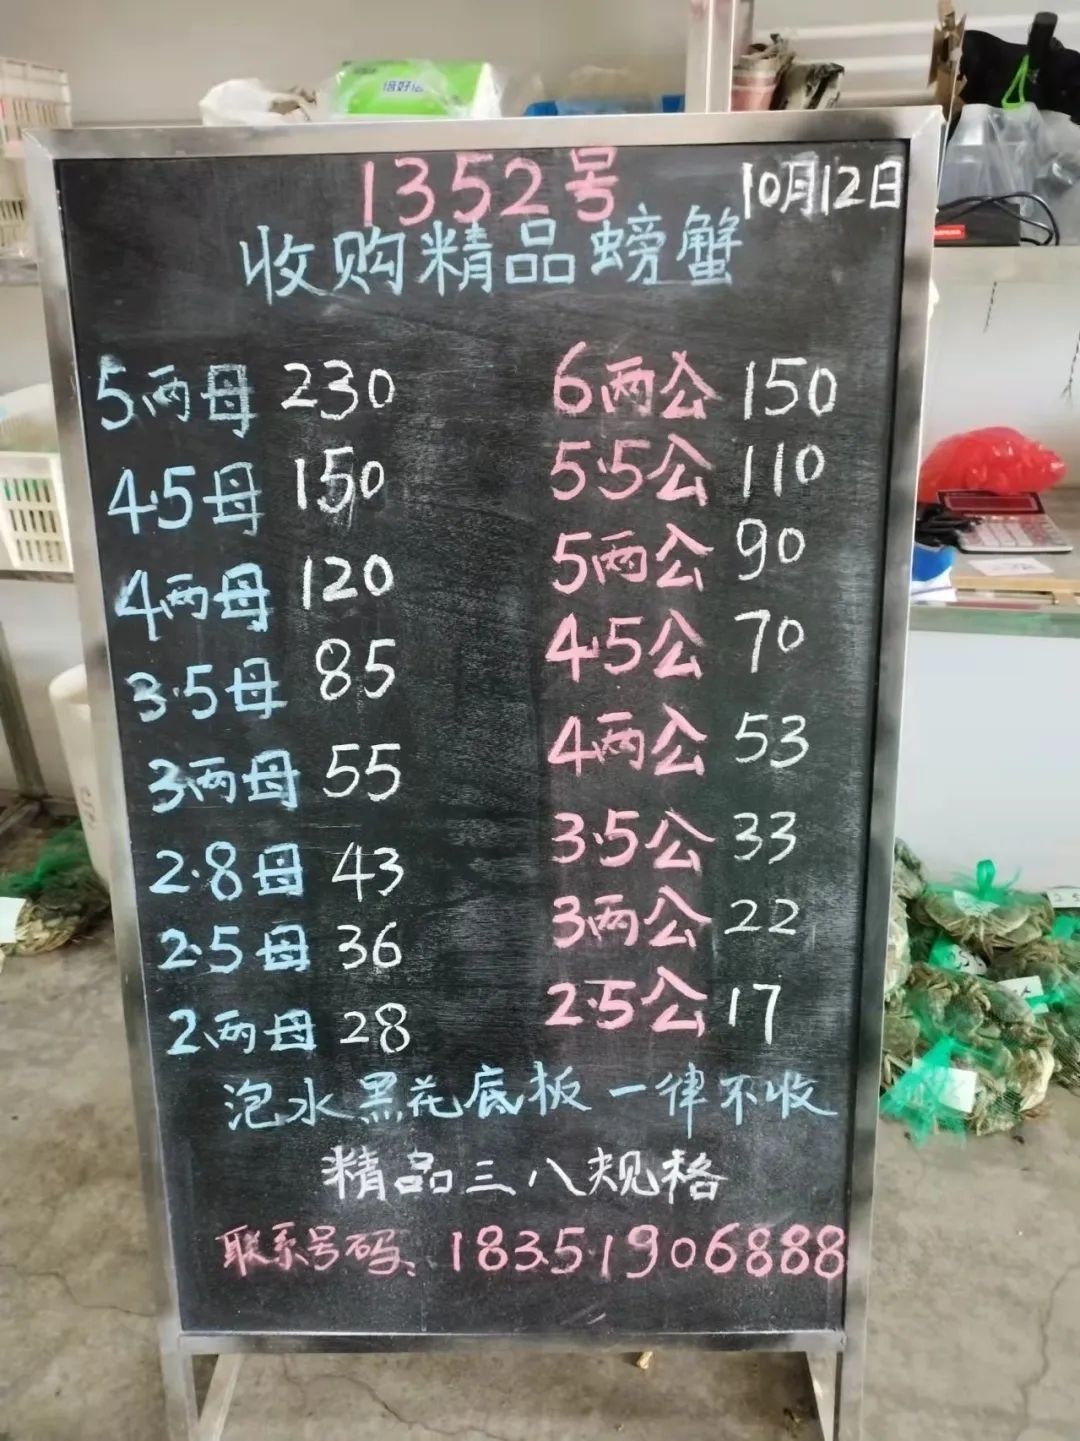 倍好
1352号
10月12日
收购精品螃蟹
5两母 230 6两公 150
4.5母 150 5.5公 110
4两母 120 5两公 90
3.5母 85 4.5公 70
3两母 55 4两公 53
2.8母 43 3.5公 33
2.5母 36 3两公 22
2两母 28 2.5公 17
泡水黑花底板一律不收
精品三八规格
联系号码: 18351906888